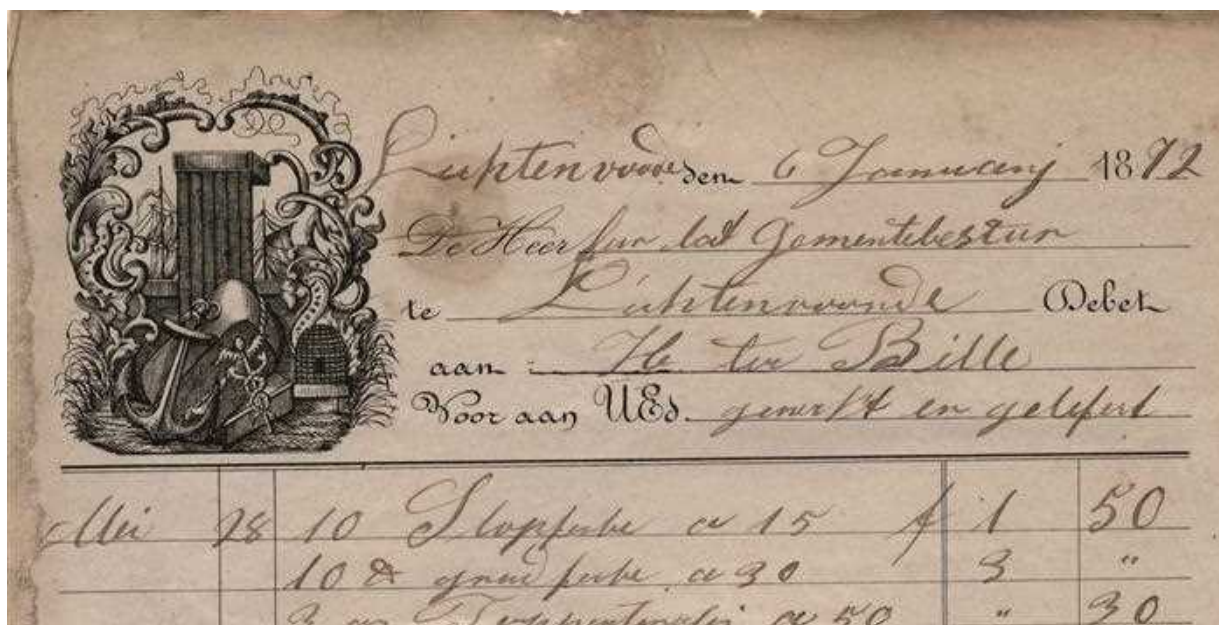 Lichtenvoorde den 6 Januarij 1872
De Heer fan lat Gementebestur
te Lichtenvoorde Debet
aan H ter Bille
Voor aan UEd. gewerkt en gelefert
Mei 28 10 Stopferbe a 15 f 1 50
10 grond ferbe a 30 3 "
3 a 50 " 30